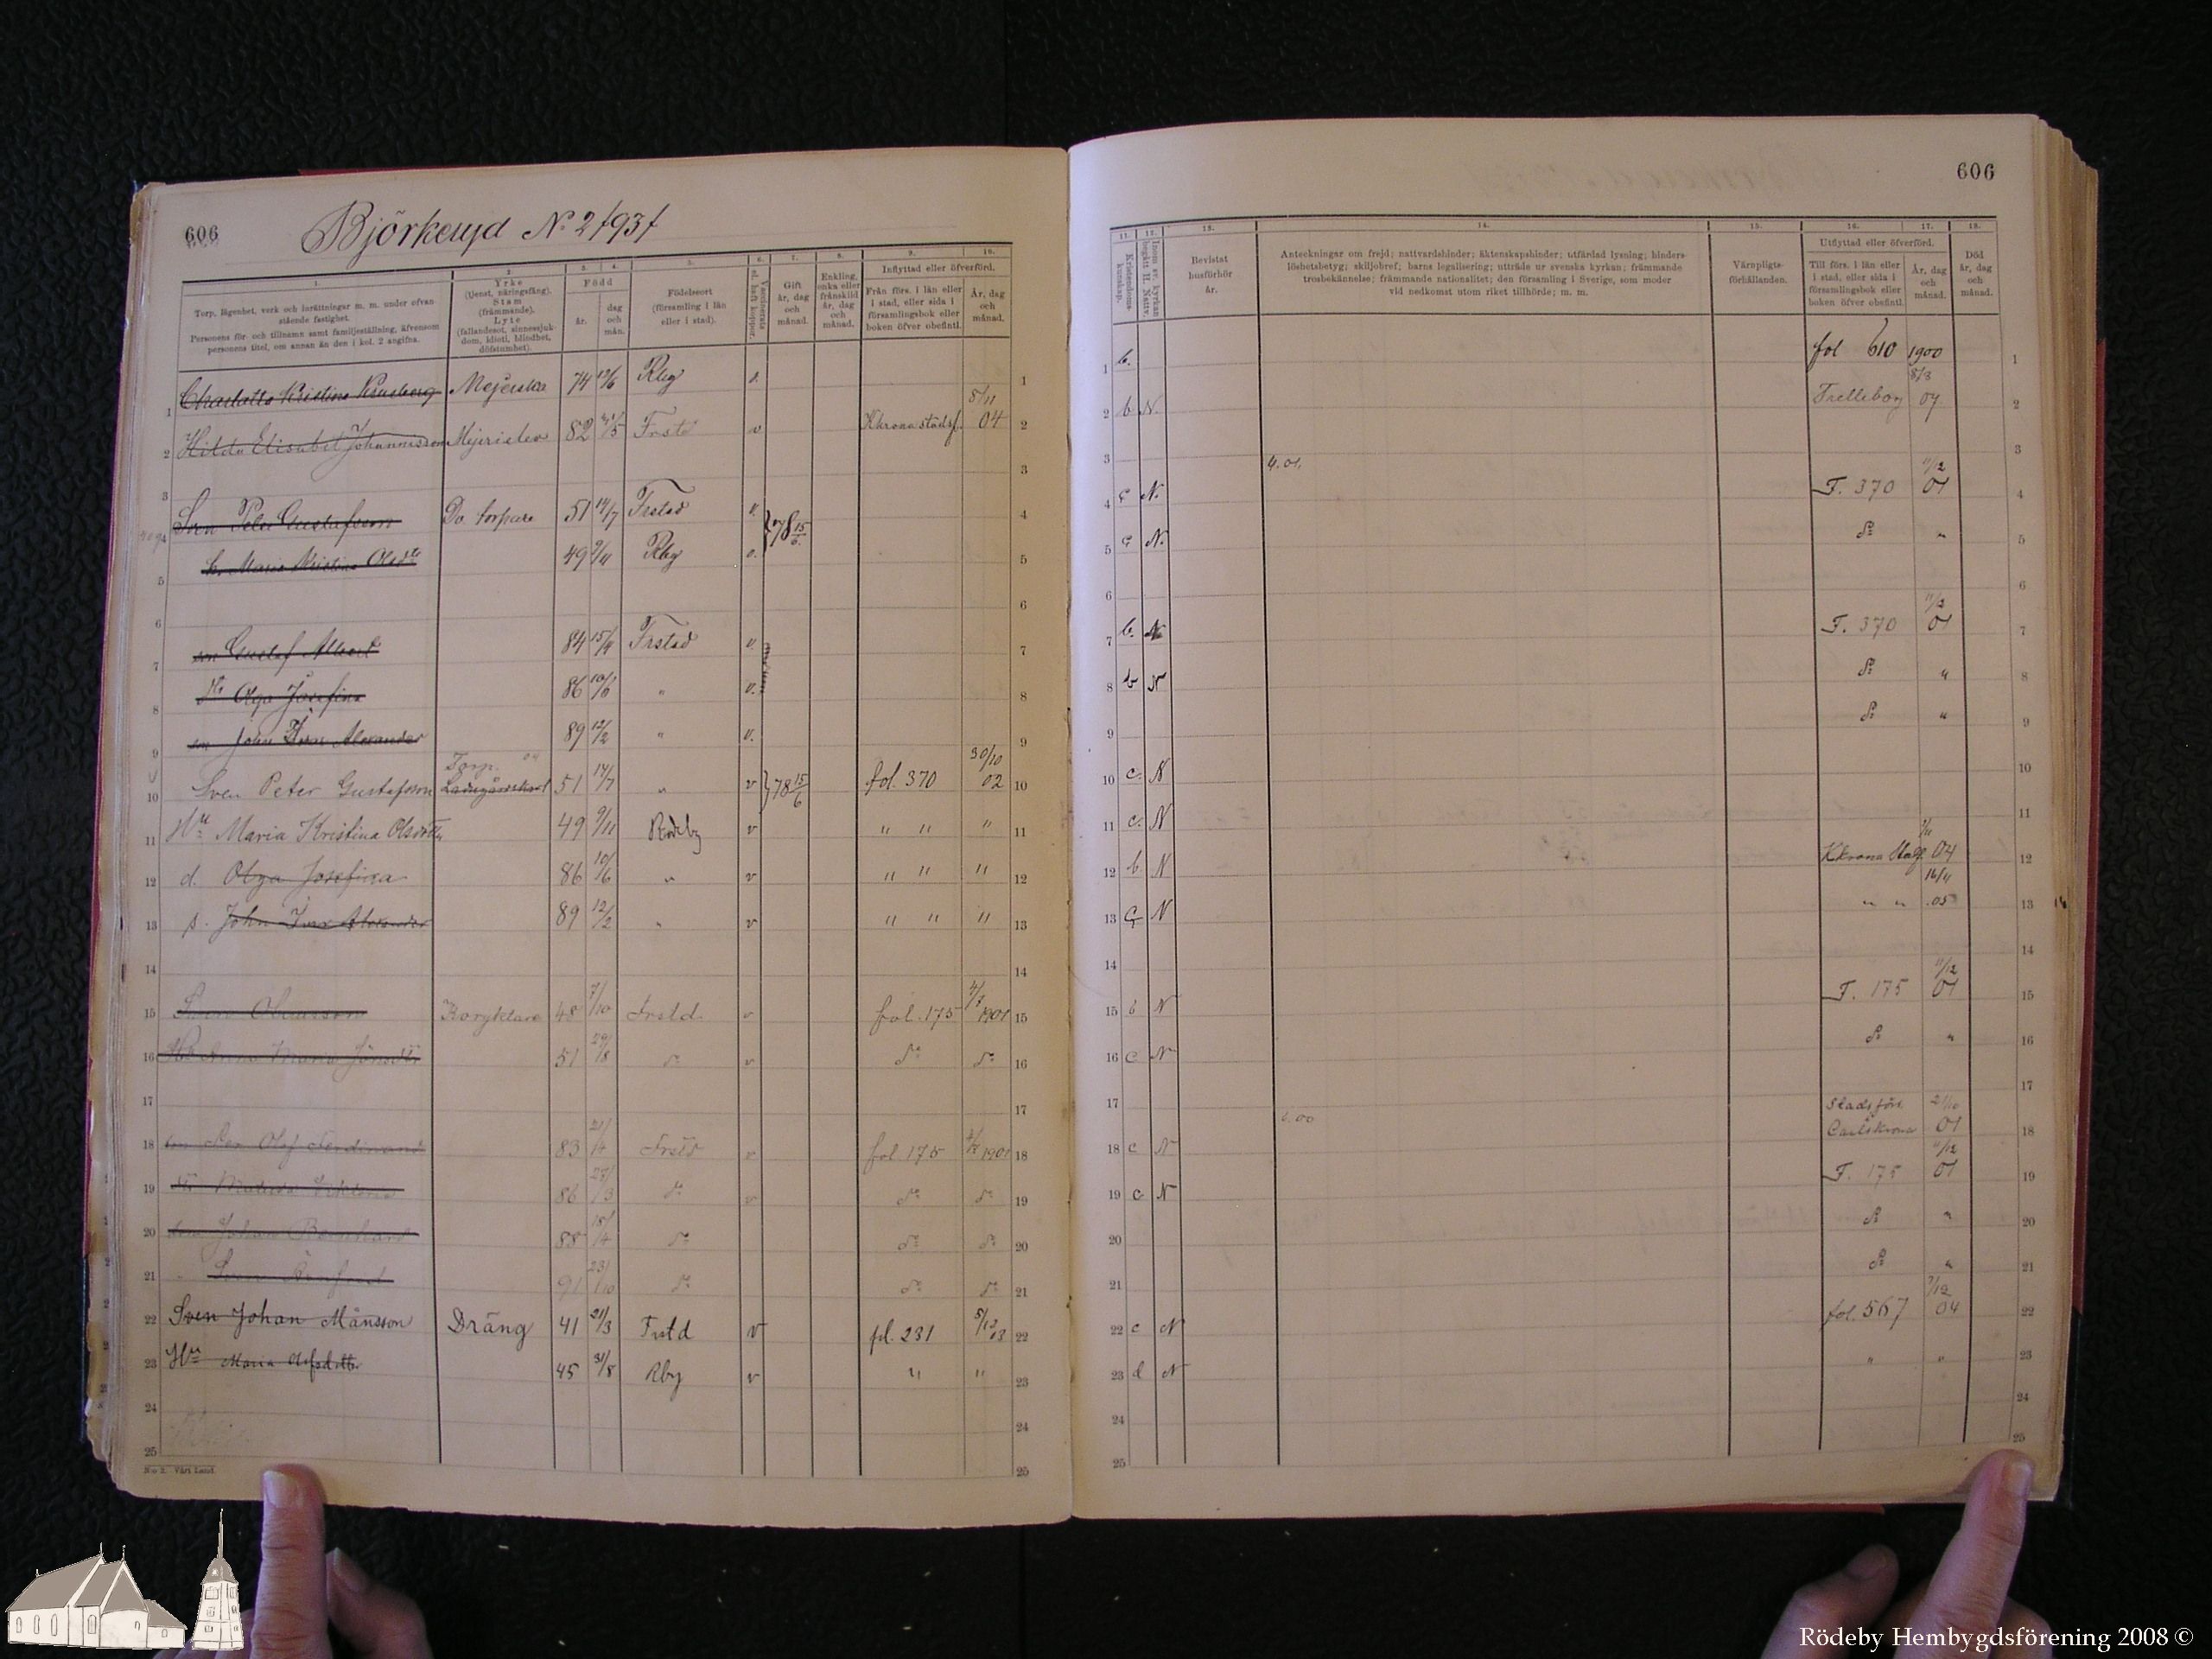 606
Björkeryd No 2
606
1.
Torp, lägenhet, verk och inrättningar m. m. under ofvan
stående fastighet.
Personens för- och tillnamn samt familjeställning, äfvensom
personens titel, om annan än den i kol. 2 angifna.
2.
Yrke
(tjenst, näringsfång).
Stam
(främmande).
Lyte
(fallandesot, sinnessjuk-
dom, idioti, blindhet,
döfstumhet).
3. 4.
Född
år. dag
och
mån.
5.
Födelseort
(församling i län
eller i stad).
6.
7.
Gift
år, dag
och
månad.
8.
Enkling,
enka eller
frånskild
år, dag
och
månad.
9. 10.
Inflyttad eller öfverförd.
Från förs. i län eller
i stad, eller sida i
församlingsbok eller
boken öfver obefintl.
År, dag
och
månad.
11. Kristendoms-
kunskap.
12.
13.
Bevistat
husförhör
år.
14.
Anteckningar om frejd; nattvardshinder; äktenskapshinder; utfärdad lysning; hinders-
löshetsbetyg; skiljobref; barns legalisering; utträde ur svenska kyrkan; främmande
trosbekännelse; främmande nationalitet; den församling i Sverige, som moder
vid nedkomst utom riket tillhörde; m. m.
15.
Värnpligts-
förhållanden.
16. 17.
Utflyttad eller öfverförd.
Till förs. i län eller
i stad, eller sida i
församlingsbok eller
boken öfver obefintl.
År, dag
och
månad.
18.
Död
år, dag
och
månad.
1 Charlotta Kristina Mejerska 74 Rby v. 1 b. fol 610 1900 1
2 Hilda Elisabet Johannesson Mejerielev 82 Frstd v Kkrona stadsf. 5/11 04 2 b N Trelleborg 8/8 04 2
3 3 3
4 Sven Peter Gustafsson Do torpare 51 14/7 Frstad v. 78 15/6 4 c N. F. 370 11/12 01 4
5 h. Maria Kristina Olsdtr 49 9/11 Rby v. 5 c N. do " 5
6 6 6
7 sn Gustaf Albert 84 Frstad v. 7 b. N F. 370 11/12 01 7
8 dtr Olga Josefina 86 10/6 " v. 8 b N do " 8
9 sn John Ivar Alexander 89 12/2 " v. 9 do " 9
10 Sven Peter Gustafsson Torp. 51 14/7 " v 78 15/6 fol. 370 30/10 02 10 c. N 10
11 Hu Maria Kristina Olsdotter 49 9/11 Rödeby v " " " 11 c. N 11
12 d. Olga Josefina 86 10/6 " v " " " 12 b N 04 12
13 s. John Ivar Alexander 89 12/2 " v " " " 13 N " " 16/11 05 13
14 14 14
15 Korgklare 48 7/10 Frstd v fol. 175 1901 15 b N F. 175 11/12 01 15
16 Anna Maria Jönsdtr 51 do v do do 16 c N do " 16
17 17 17
18 Per Olof Ferdinand 83 21/4 Frstd v fol 175 1901 18 c N Stadsförs. Carlskrona 01 18
19 86 do v do do 19 c N F. 175 11/12 01 19
20 Johan Bernhard 88 18/4 do do do 20 do " 20
21 Sven 91 23/10 do do do 21 do " 21
22 Sven Johan Månsson Dräng 41 21/3 Frstd v fol. 231 22 c N fol. 567 7/12 04 22
23 Hu Maria Olofsdotter 45 31/8 Rby v " " 23 d N " " 23
24 24 24
25 25 25
No 2. Vårt Land.
Rödeby Hembygdsförening 2008 ©